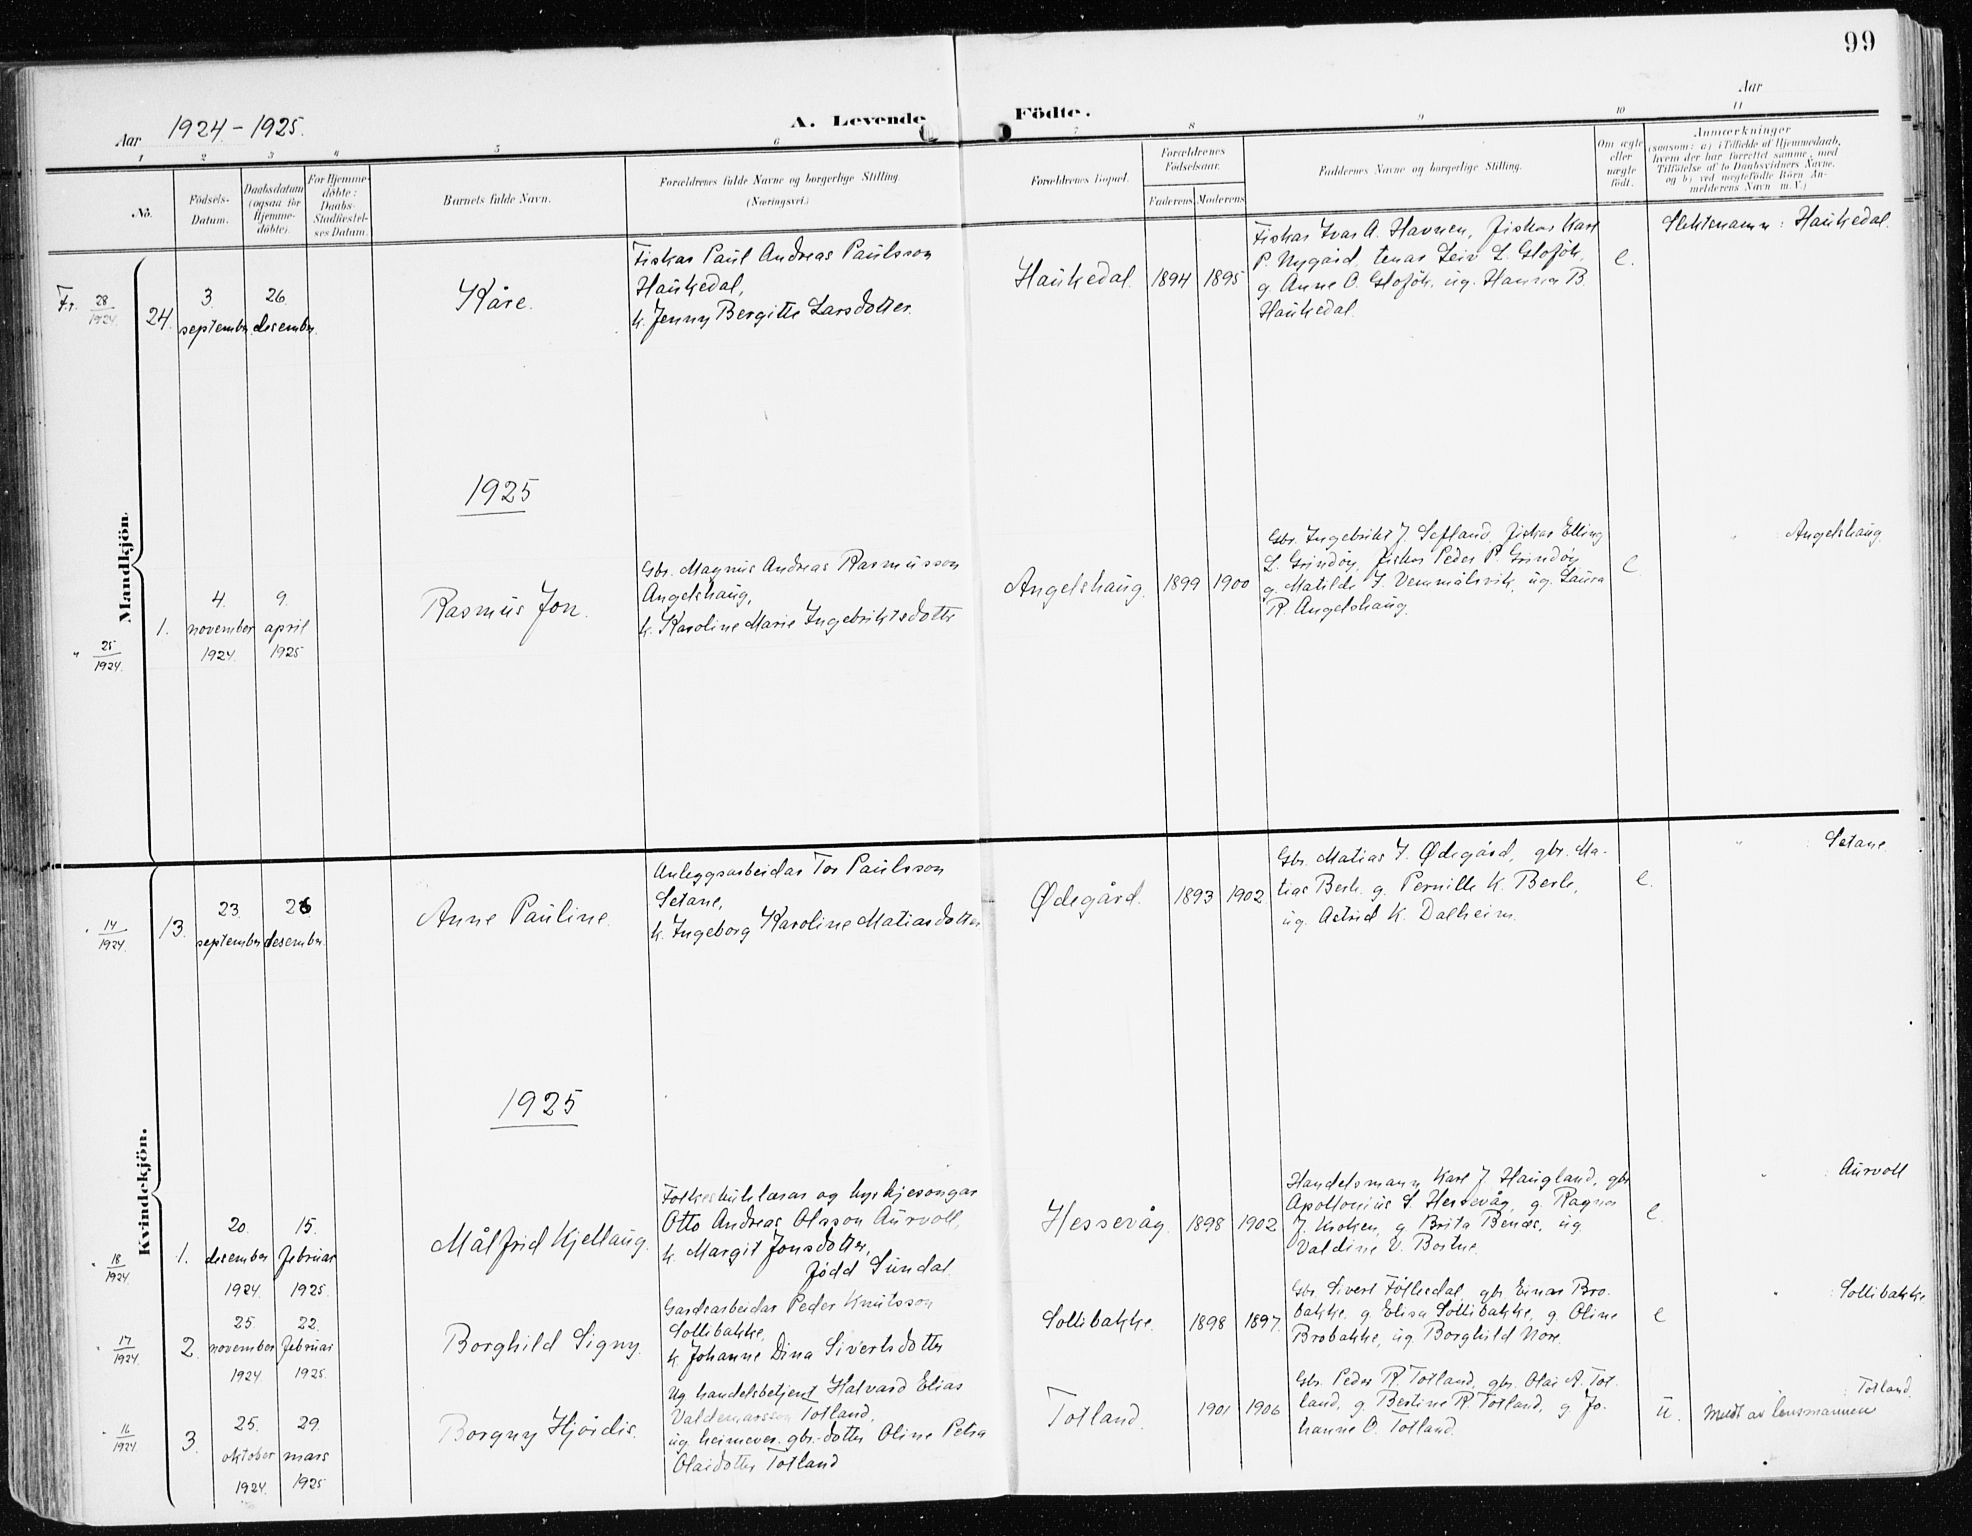 99
Aar 1924-1925.
A. Levende Födte.
Aar
1 2 3 4 5 6 7 8 9 10 11
No.
Födsels-
Datum.
Daabsdatum
(ogsaa for
Hjemme-
döbte).
For Hjemme-
döbte:
Daabs-
Stadfæstel-
ses Datum.
Barnets fulde Navn.
Forældrenes fulde Navne og borgerlige Stilling.
(Næringsvei.)
Forældrenes Bopæl.
Forældrenes
Födselsaar.
Faderens Moderens
Faddernes Navne og borgerlige Stilling.
Om ægte
eller
uægte
födt.
Anmærkninger
(saasom: a) i Tilfælde af Hjemmedaab,
hvem der har forrettet samme, med
Tilföielse af to Daabsvidners Navne,
og b) ved uægtefödte Börn An-
melderens Navn m. V.)
Mandkjön.
Fr. 28/1924
24.
3.
september
26.
desember.
Kåre.
Fiskar Paul Andreas Paulsson
Haukedal,
k. Jenny Bergitte Larsdotter.
Haukedal.
1894
1895
Fiskar Ivar A. Havnen, fiskar Karl
P. Nygård, tenar Leiv L.
g. Anne O. ug. Hanna B.
Haukedal.
e.
Slektsnamn: Haukedal.
1925
" 25/1924.
1.
4.
november
1924.
9.
april
1925
Rasmus Jon.
Gbr. Magnus Andreas Rasmusson
Angelshaug,
k. Karoline Marie Ingebriktsdotter
Angelshaug.
1899
1900
Gbr. Ingebrikt J. Sefland, fiskar Elling
L. Grindøy, fiskar Peder P. Grindøy
g. Matilde J. Vemmålsvik, ug. Laura
R. Angelshaug.
e.
" : Angelshaug.
Kvindekjön.
" 14/1924.
13.
23.
september
26.
desember.
Anne Pauline.
Anleggsarbeidar Tor Paulsson
Setane,
k. Ingeborg Karoline Matiasdotter
Ødegård.
1893
1902
Gbr. Matias J. Ødegård, gbr. Ma-
tias Berle, g. Pernille K. Berle,
ug. Astrid K. Dalheim.
e.
" : Setane.
1925
" 18/1924.
1.
20.
desember
1924
15.
februar
1925.
Målfrid Kjellaug.
Folkeskulelærar og kyrkjesongar
Otto Andreas Olsson Aurvoll,
k. Margit Jonsdotter,
fødd Sundal.
Hessevåg.
1898
1902
Handelsmann Karl J. Haugland, gbr
Apollonius S. Hessevåg, g. Ragna
J. Kroken, g. Brita Benæs, ug
Valdine V. Bortne.
e.
" : Aurvoll
" 17/1924.
2.
25.
november
1924
22.
februar
1925.
Borghild Signy.
Gardsarbeidar Peder Knutsson
Sollibakke,
k. Johanne Dina Sivertsdotter
Sollibakke.
1898
1897.
Gbr. Sivert Følkedal, gbr. Einar Bro-
bakke, g. Elisa Sollibakke, g. Oline
Brobakke, ug. Borghild Nore.
e
" : Sollibakke.
" 16/1924.
3.
25.
oktober
1924.
29.
mars
1925
Borgny Hjørdis.
Ug handelsbetjent Halvard Elias
Valdemarsson Totland,
ug. heimever. gbr.-dotter Oline Petra
Olaidotter Totland
Totland.
1901
1906
Gbr. Peder R. Totland, gbr. Olai A. Tot-
land, g. Bertine R. Totland, g. Jo-
hanne O. Totland.
u.
" : Totland.
Meldt av lensmannen